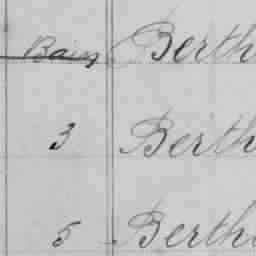 Bains Berth
3 Berth
5 Berth